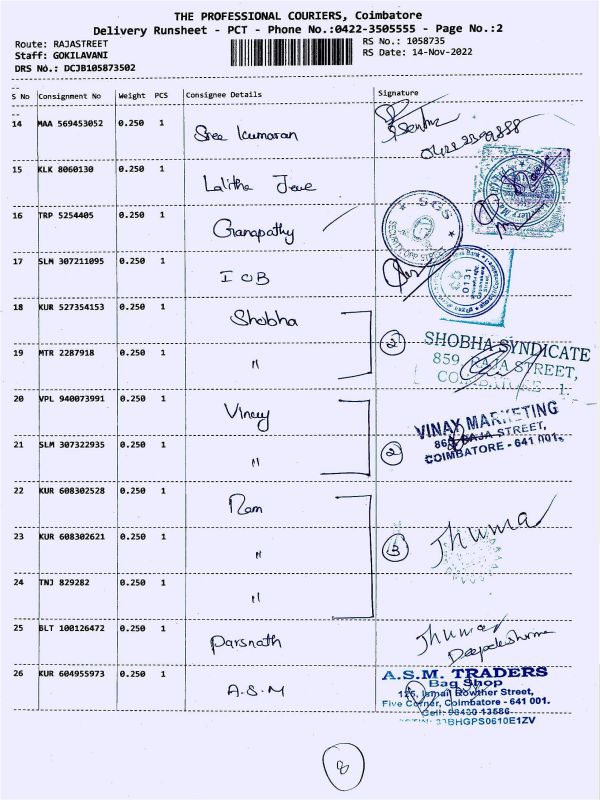 THE PROFESSIONAL COURIERS, Coimbatore
Delivery Runsheet - PCT - Phone No.:0422-3505555 - Page No.:2
Route: RAJASTREET
RS No.: 1058735
Staff: GOKILAVANI
RS Date: 14-Nov-2022
DRS No.: DCJB105873502
S No Consignment No Weight PCS Consignee Details Signature
14 MAA 569453052 0.250 1 Sree Kumaran
15 KLK 8060130 0.250 1 Lalitha
16 TRP 5254405 0.250 1 Ganapathy
SGS
17 SLM 307211095 0.250 1 IOB
10131
18 KUR 527354153 0.250 1 Shobha
19 MTR 2287918 0.250 1 "
2
SHOBHA SYNDICATE
859, RAJA STREET,
COIMBATORE - 1.
20 VPL 940073991 0.250 1 Vinay
21 SLM 307322935 0.250 1 "
2
VINAY MARKETING
RAJA STREET,
COIMBATORE - 641 001.
22 KUR 608302528 0.250 1 Ram
23 KUR 608302621 0.250 1 "
3
Jhuma
24 TNJ 829282 0.250 1 "
25 BLT 100126472 0.250 1 Parsnath
Jhuma
26 KUR 604955973 0.250 1 A.S.M
A.S.M. TRADERS
Bag Shop
Ismail Rowther Street,
Five Corner, Coimbatore - 641 001.
Cell: 98430 13586
33BHGPS0610E1ZV
8